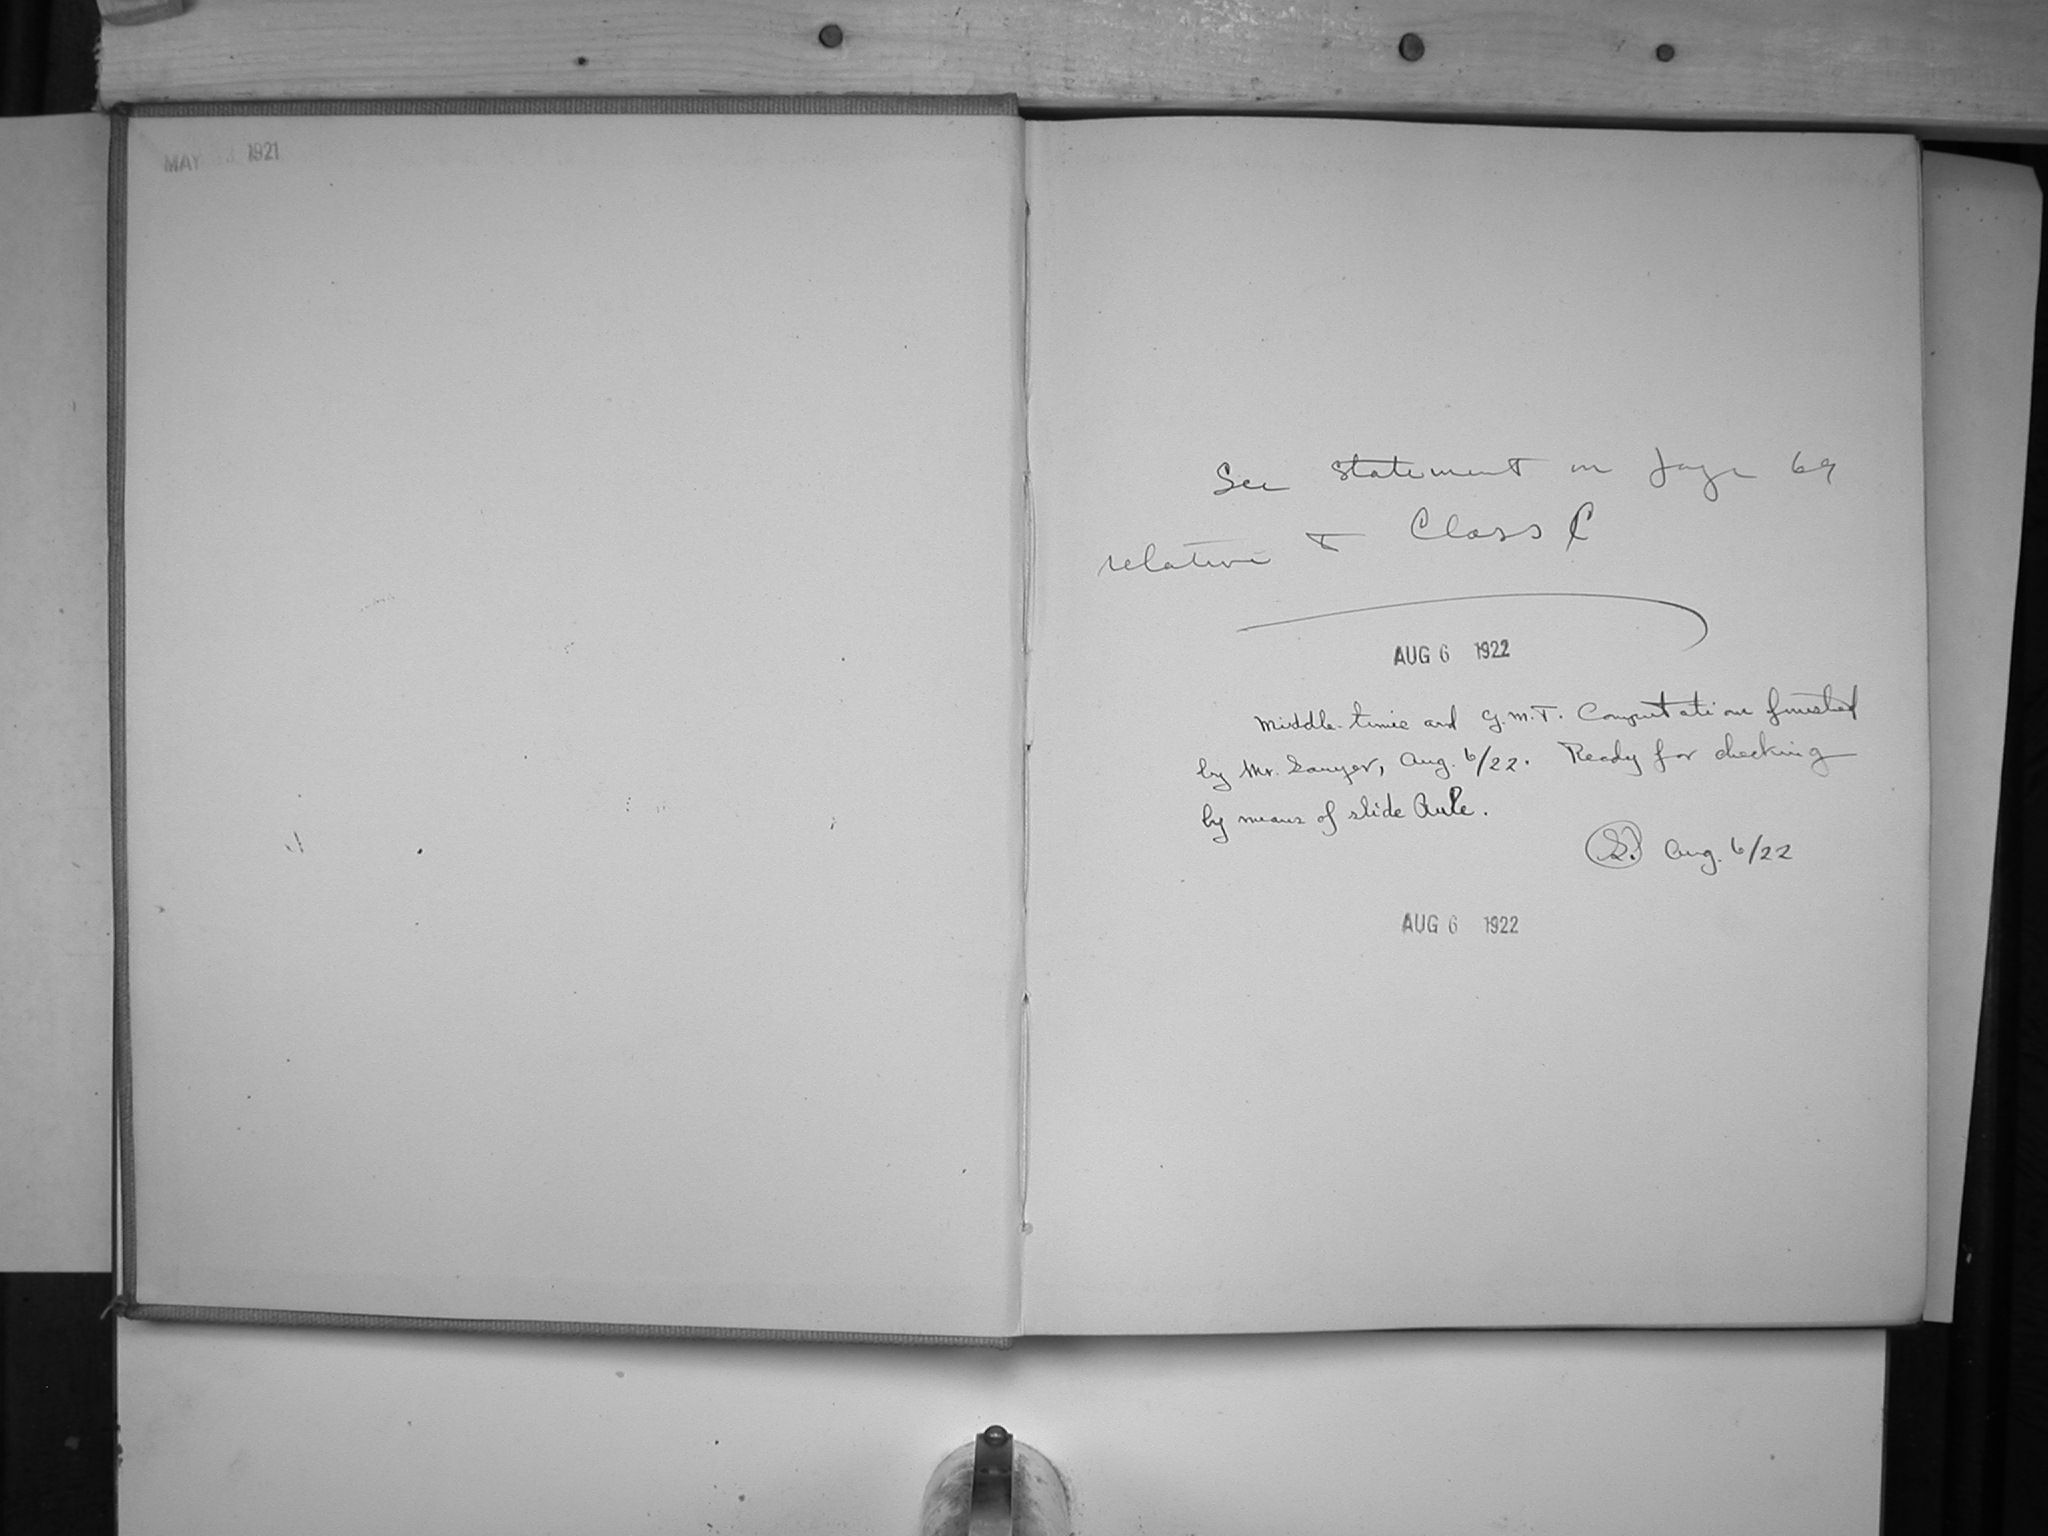 MAY 1921
See statement on page 69
relative to Class C
AUG 6 1922
Middle-time and G.M.T. Computations finished
by Mr. Sawyer, Aug. 6/22. Ready for checking
by means of slide Rule.
S. Aug. 6/22
AUG 6 1922